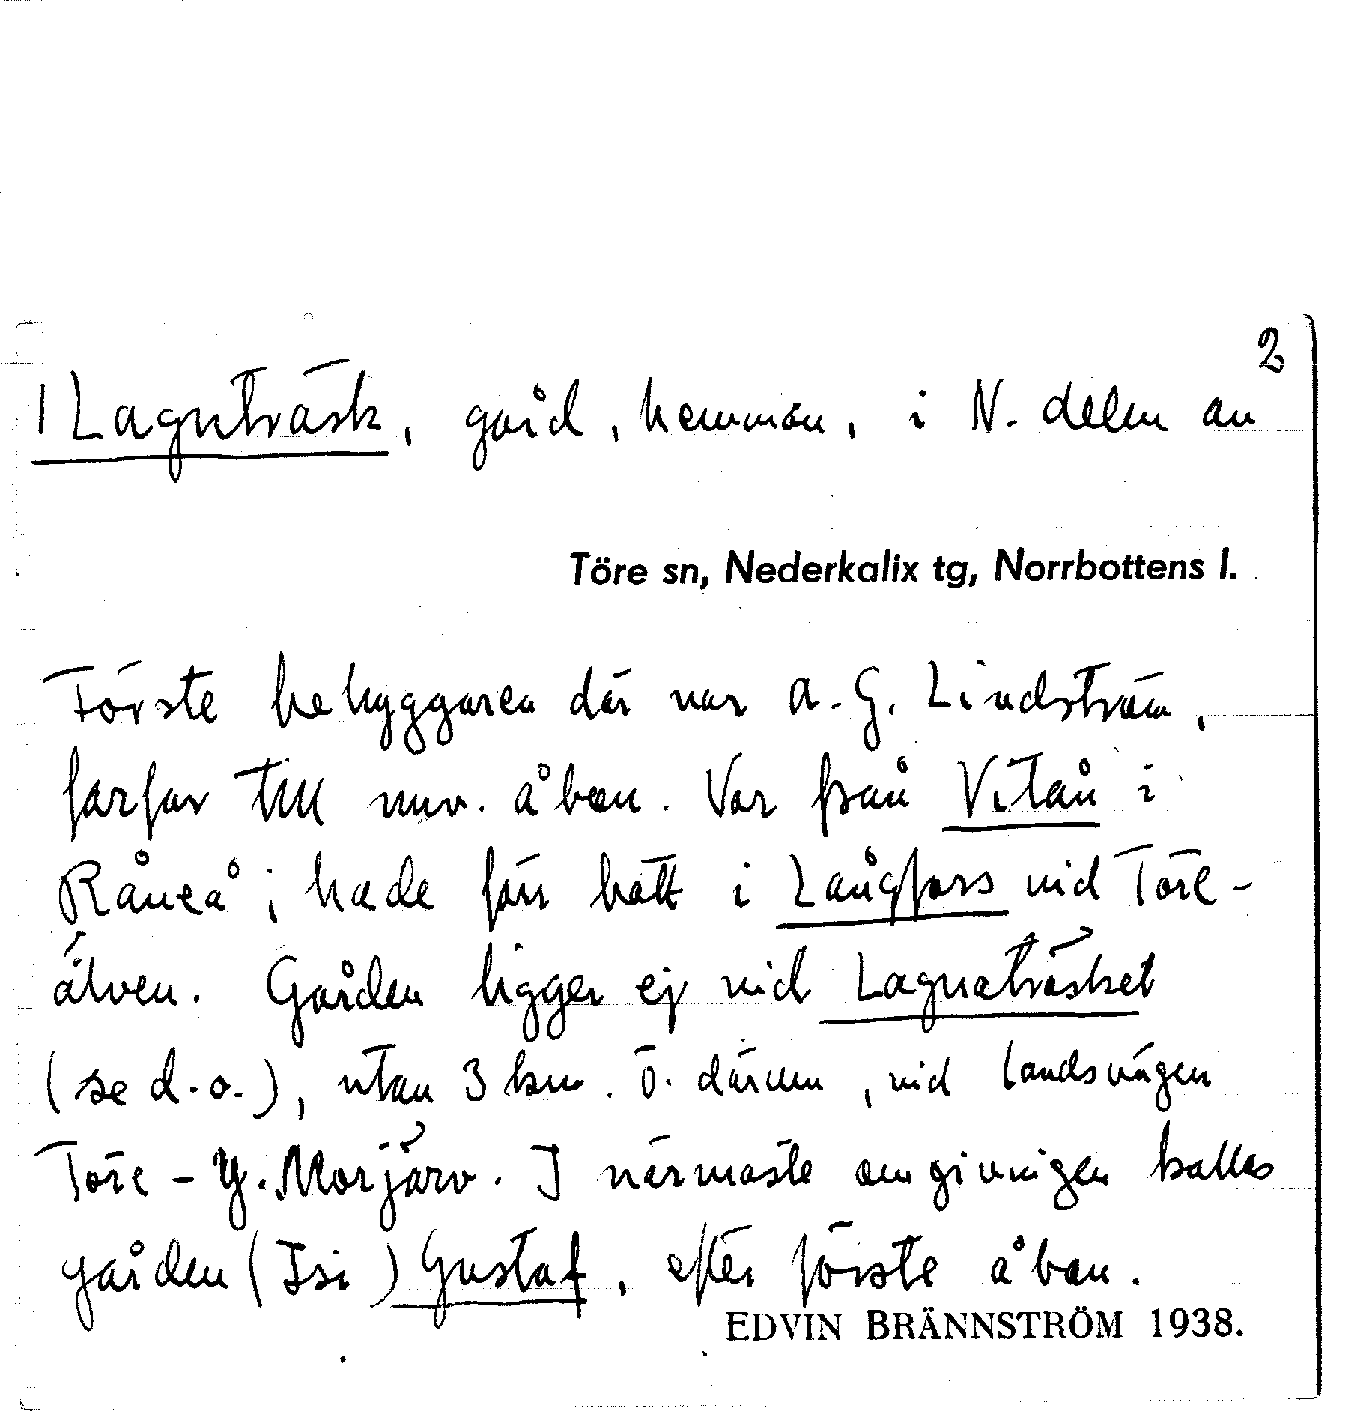 2
1 Lagnträsk, gård, hemman, i N. delen av
Töre sn, Nederkalix tg, Norrbottens l.
Förste bebyggaren där var A. G. Lindström,
farfar till nuv. åbon. Var från Vitån i
Råneå; hade förr bott i Långfors vid Töre-
älven. Gården ligger ej vid Lagnaträsket
(se d.o.), utan 3 km. Ö. därom, vid landsvägen
Töre - Y. Morjärv. I närmaste omgivnigen kallas
gården (Isi) Gustaf, efter förste åbon.
EDVIN BRÄNNSTRÖM 1938.